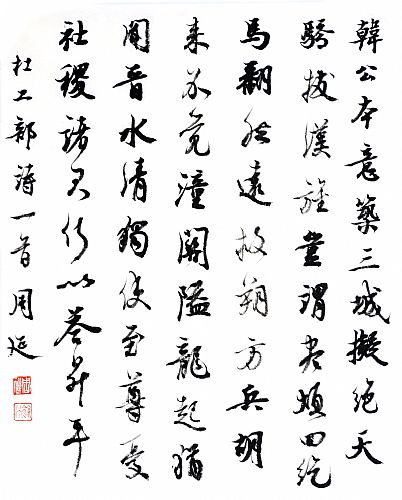 韓公本意築三城擬絕天
驕拔漢旌豈謂盡煩回紇
馬翻然遠救朔方兵胡
來不覺潼關隘龍起猶
聞晉水清獨使至尊憂
社稷諸君何以荅昇平
杜工部詩一首 周延